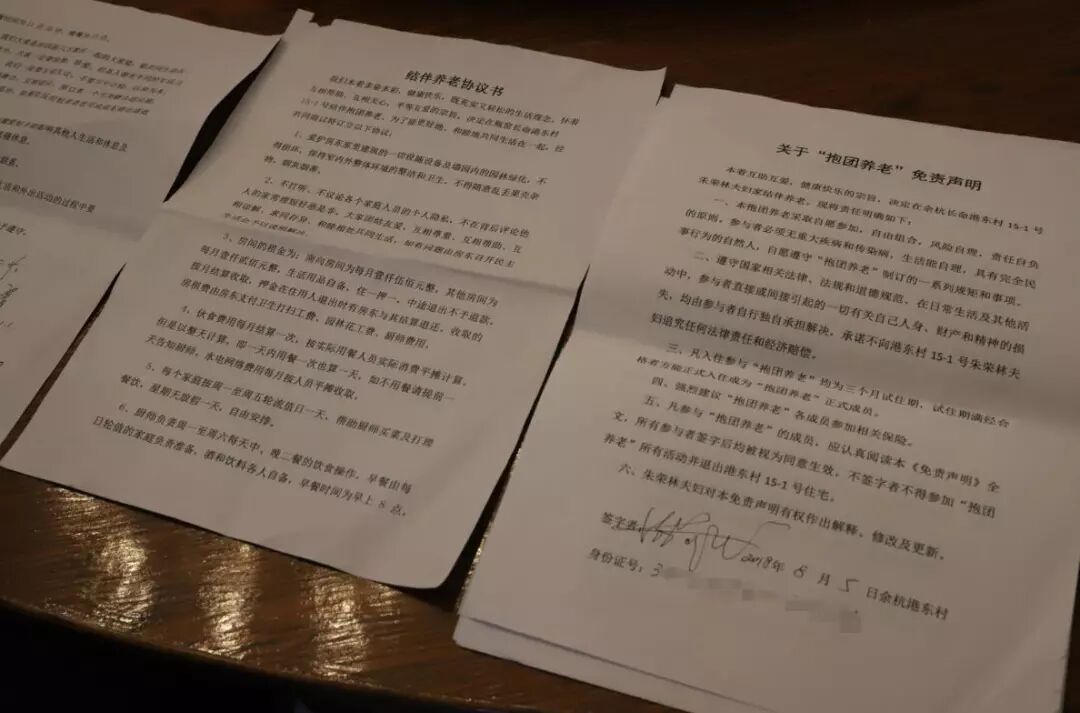 影响其他人生活和休息及
结伴养老协议书
我们本着亲愉本彩、健康快乐，既充实又轻松的生活理念，怀着
互相帮助、互相关心、平等互爱的宗旨，决定在瓶窑长命港东村
15-1 号结伴抱团养老，为了能更好地、和睦地共同生活在一起，经
协商提议将订立以下协议：
1、爱护房东家里建筑的一切设施设备及墙园内的园林绿化，不
得损坏，保持室内外整体环境的整洁和卫生，不得随意乱丢果壳杂
物、烟灰烟蒂。
2、不打听、不议论各个家庭人员的个人隐私，不在背后评论他
人的家常理短好恶是非，大家团结友爱、互相尊重、互相帮助、互
相谅解、求同存异，和睦相处共同生活，如有问题由房东召开民主
3、房间的租金为：南向房间为每月壹仟伍佰元整，其他房间为
每月壹仟贰佰元整，生活用品自备，住一押一，中途退出不予退款。
按月结算收取，押金在住用人退出时有房东与其结算退还，收取的
房租费由房东支付卫生打扫工费、园林花工费、厨师费用。
4、伙食费用每月结算一次，按实际用餐人员实际消费平摊计算。
但是以整天计算，即一天内用餐一次也算一天，如不用餐请提前一
天告知厨师，水电网络费用每月按人员平摊收取。
5、每个家庭按周一至周五轮流值日一天，帮助厨师买菜及打理
餐饮，星期天放假一天，自由安排。
6、厨师负责周一至周六每天中、晚二餐的饮食操作，早餐由每
日轮值的家庭负责准备，酒和饮料各人自备，早餐时间为早上 8 点，
关于“抱团养老”免责声明
本着互助互爱，健康快乐的宗旨，决定在余杭长命港东村 15-1 号
朱荣林夫妇家结伴养老，现将责任明确如下：
一、本抱团养老采取自愿参加，自由组合，风险自理，责任自负
的原则，参与者必须无重大疾病和传染病，生活能自理，具有完全民
事行为的自然人，自愿遵守“抱团养老”制订的一系列规矩和事项。
二、遵守国家相关法律、法规和道德规范，在日常生活及其他活
动中，参与者直接或间接引起的一切有关自己人身、财产和精神的损
失，均由参与者自行独自承担解决，承诺不向港东村 15-1 号朱荣林夫
妇追究任何法律责任和经济赔偿。
三、凡入住参与“抱团养老”均为三个月试住期，试住期满经合
格者方能正式入住成为“抱团养老”正式成员。
四、强烈建议“抱团养老”各成员参加相关保险。
五、凡参与“抱团养老”的成员，应认真阅读本《免责声明》全
文，所有参与者签字后均被视为同意生效，不签字者不得参加“抱团
养老”所有活动并退出港东村 15-1 号住宅。
六、朱荣林夫妇对本免责声明有权作出解释、修改及更新。
签字者:
2018年 8 月 5 日余杭港东村
身份证号：3